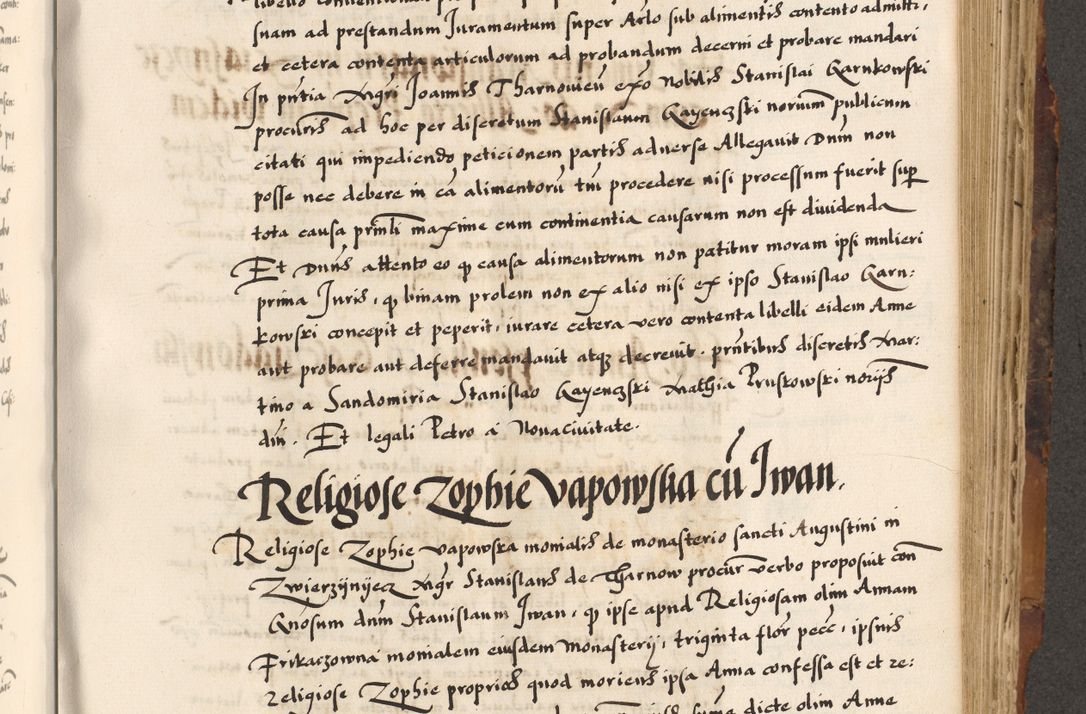 suam ad prestandum Juramentum super Arlo sub alimentis contento admitti,
et cetera contenta articulorum ad probandum decerni et probare mandari
In pntia Mgri Joannis Tharnovieñ exo Nobilis Stanislai Karnkowski
procuris ad hoc per discretum Stanislaum Kayenczski norium publicum
citati qui impediendo peticionem partis adverse Allegavit Dnm non
posse nec debere in cã alimentorũ tm procedere nisi processum fuerit sup
tota causa prinli maxime cum continentia causarum non est dividenda
Et Dnus attento eo q causa alimentorum non patitur moram ipsi mulieri
prima Juris, q binam prolem non ex alio nisi ex ipso Stanislao Karn:
kowski concepit et peperit, iurare cetera vero contenta libelli eidem Anne
aut probare aut deferre mandavit atq decrevit. pntibus discretis Mar:
tino a Sandomiria Stanislao Kayenczski Mathia Pruskowski norijs
dni. Et legali Petro a Novacivitate.
Religiose Zophie Vapowska cũ Iwan.
Religiose Zophie Vapowska monialis de monasterio sancti Augustini in
Zwierzÿnÿecz Mgr Stanislaus de Tharnow procur verbo proposuit con
Gnosum dnm Stanislaum Iwan, q ipse apud Religiosam olim Annam
Frikaczowna monialem eiusdem Monasterij, triginta flor pecc, ipsius
religiose Zophie proprios quod moriens ipsa Anna confessa est et re:
dicte olim Anne